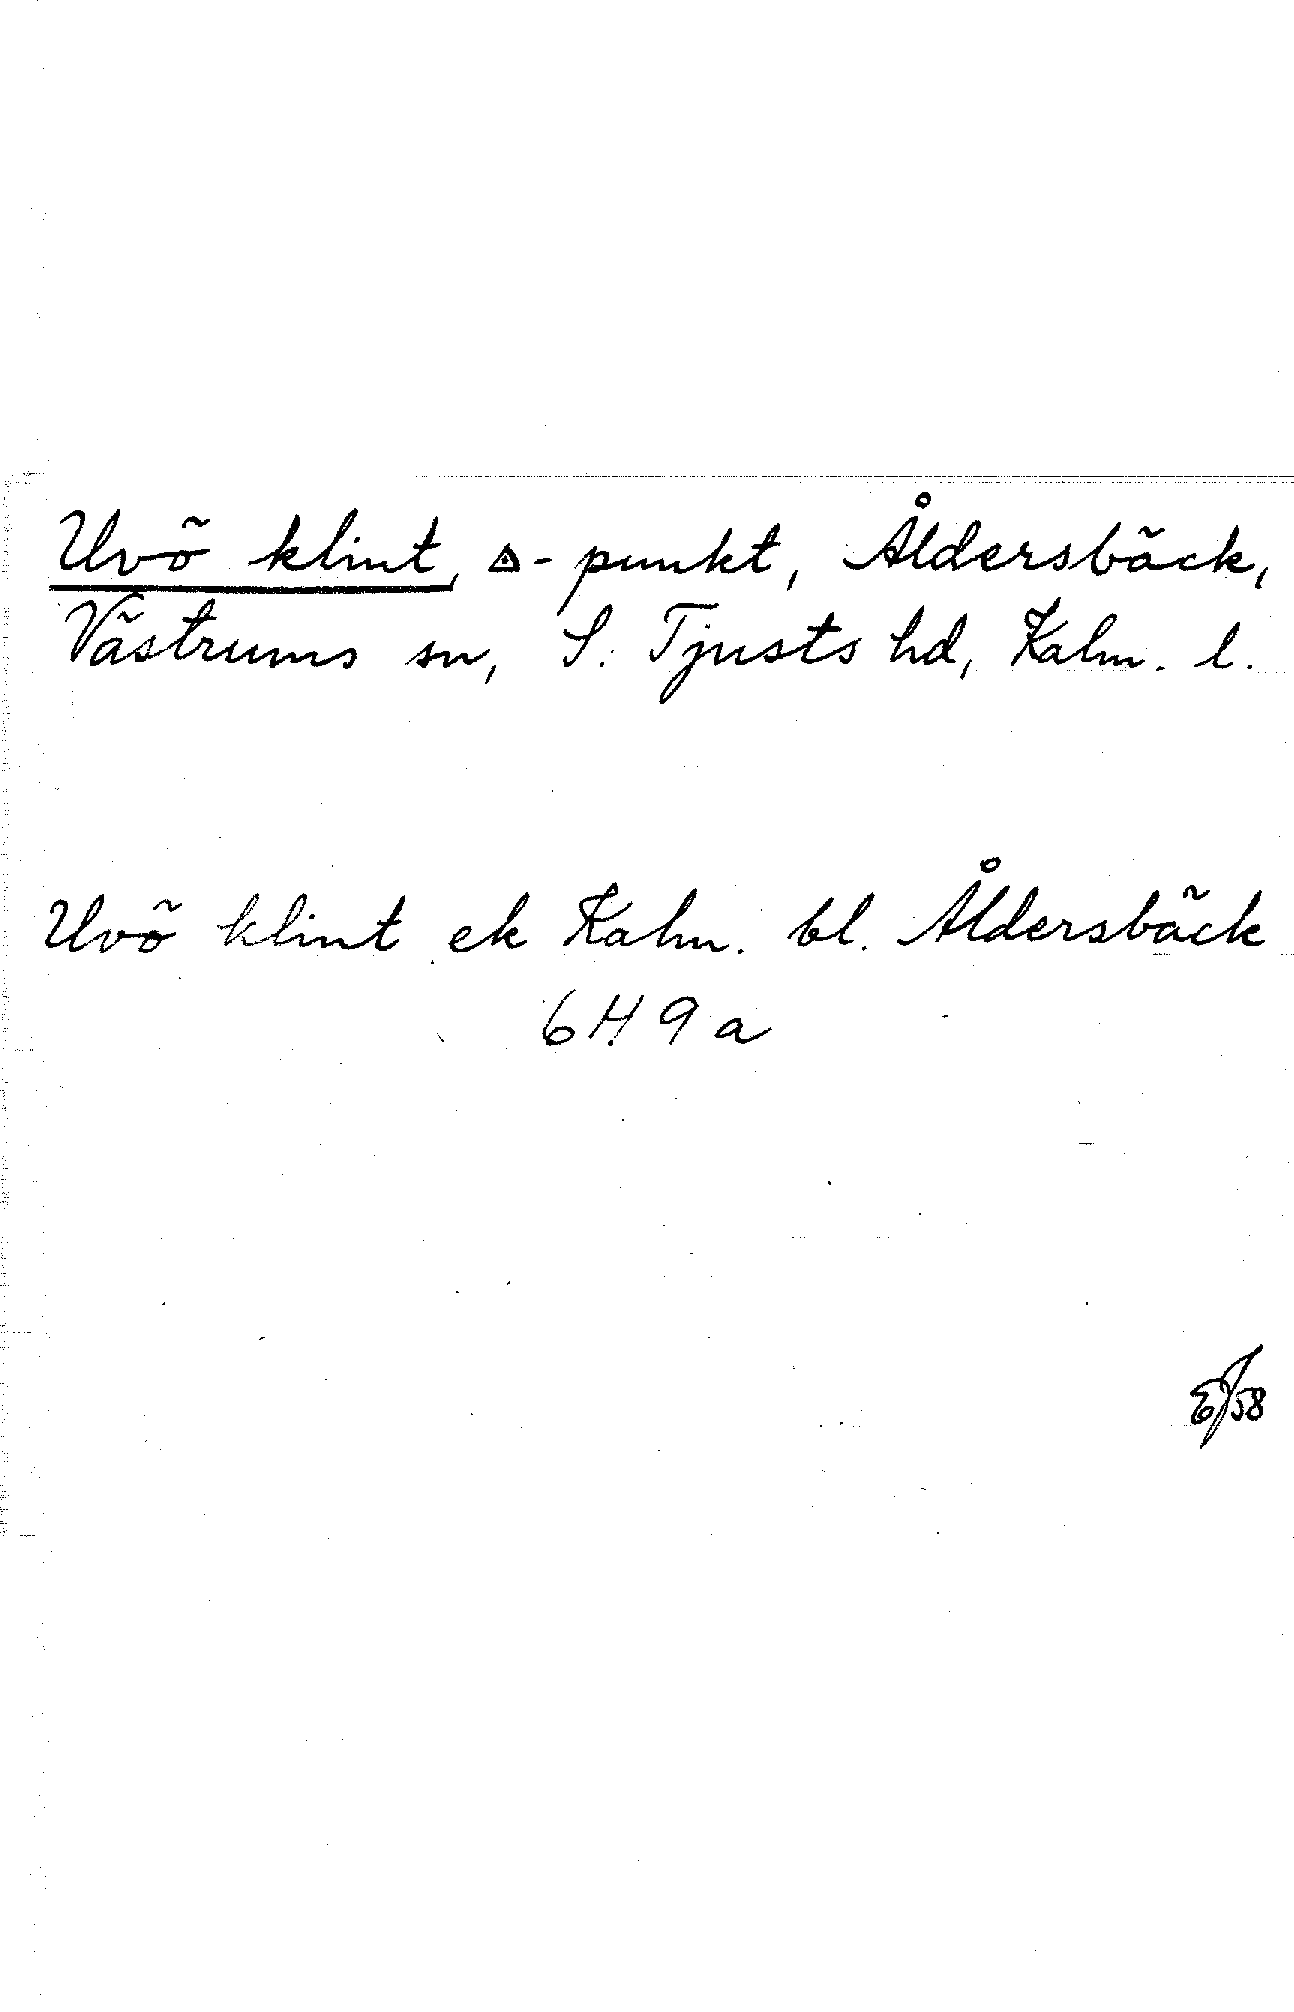 Uvö klint, △-punkt, Åldersbäck,
Västrums sn, S. Tjusts hd, Kalm. l.
Uvö klint ek Kalm. bl. Åldersbäck
6H 9a
E/58